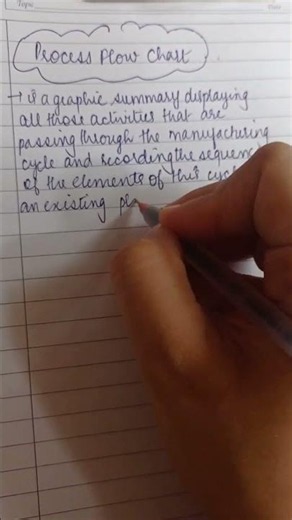 Topic
Date
Process Flow Chart
→ is a graphic summary displaying
all those activities that are
passing through the manufacturing
cycle and recording the sequenc
of the elements of this cyc
an existing pla